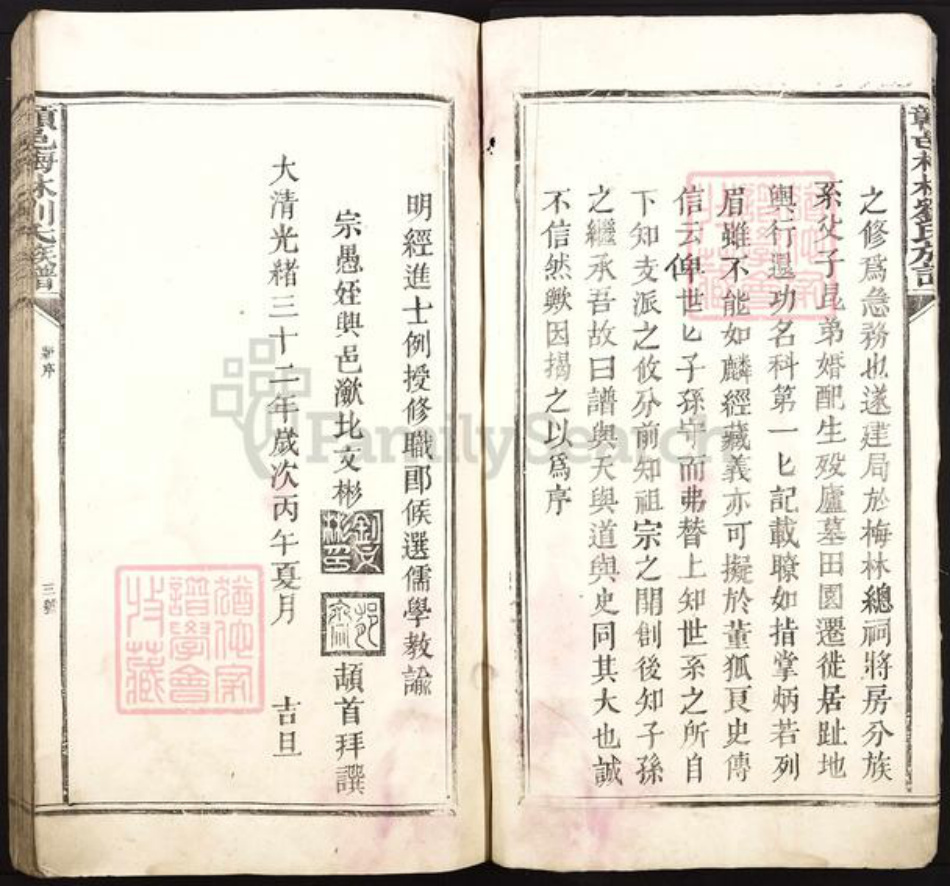 之修為急務也遂建局於梅林總祠將房分族
系父子昆弟婚配生殁廬墓田園遷徙居趾地
輿行退功名科第一匕記載瞭如指掌炳若列
眉雖不能如麟經藏義亦可擬於董狐頁史傳
信云俾世匕子孫守而弗替上知世系之所自
下知支派之攸分前知祖宗之開創後知子孫
之繼承吾故曰譜與天與道與史同其大也誠
不信然歟因揭之以為序
明經進士例授修職郎候選儒學教諭
宗愚姪興邑瀲北文彬
頓首拜譔
大清光緒三十二年歲次丙午夏月 吉旦
梅林劉氏族譜
新序
三號
FamilySearch